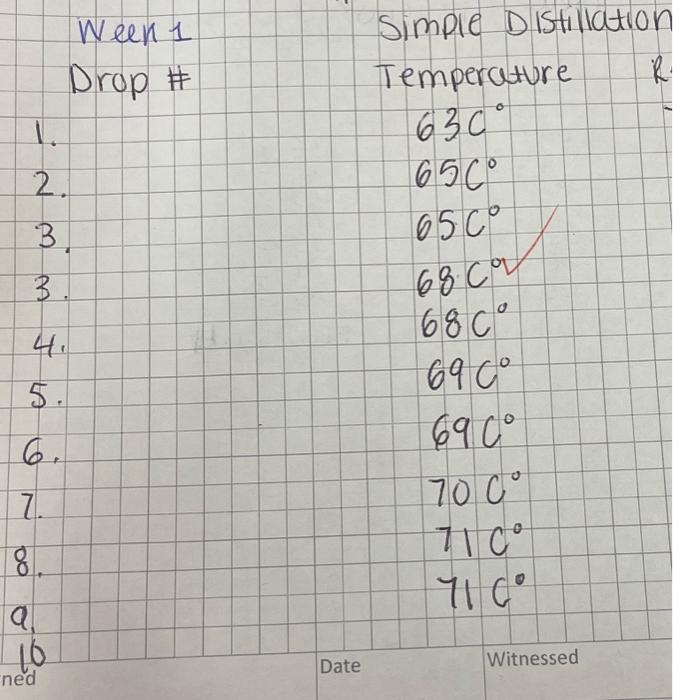 Week 1 Simple Distillation
Drop # Temperature R
1. 63C°
2. 65C°
3. 65C°
3. 68C°
4. 68C°
5. 69C°
6. 69C°
7. 70C°
8. 71C°
9. 71C°
10
ned Date Witnessed